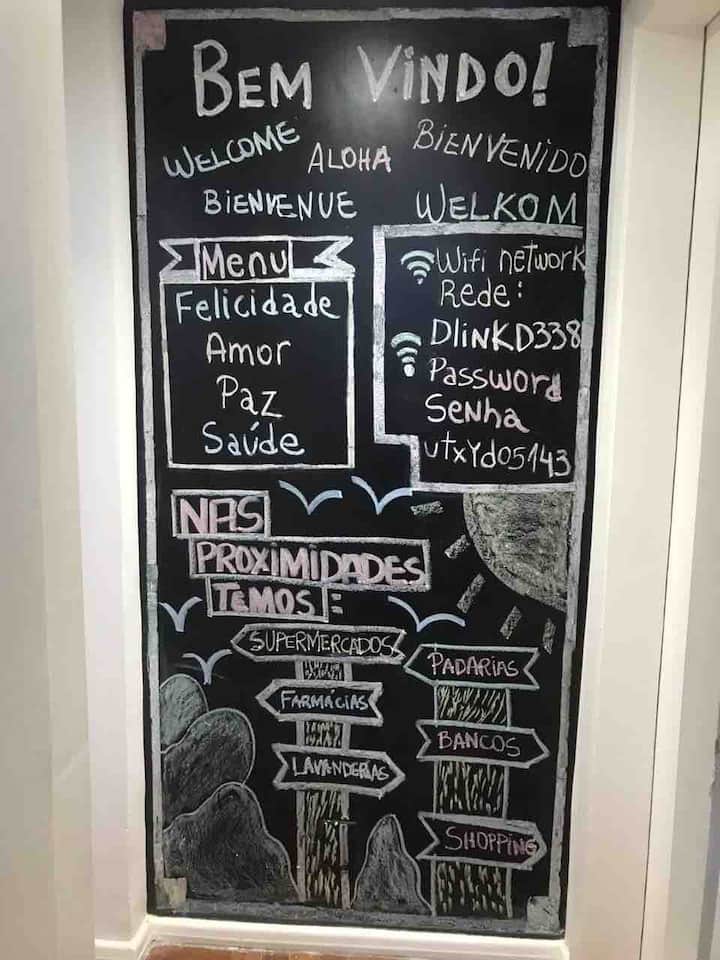 BEM VINDO!
WELCOME ALOHA BIENVENIDO
BIENVENUE WELKOM
Menu
Felicidade
Amor
Paz
Saúde
Wifi network
Rede:
DlinkD338
Password
Senha
utxYd05143
NAS
PROXIMIDADES
TEMOS:
SUPERMERCADOS
FARMÁCIAS
LAVANDERIAS
PADARIAS
BANCOS
SHOPPING